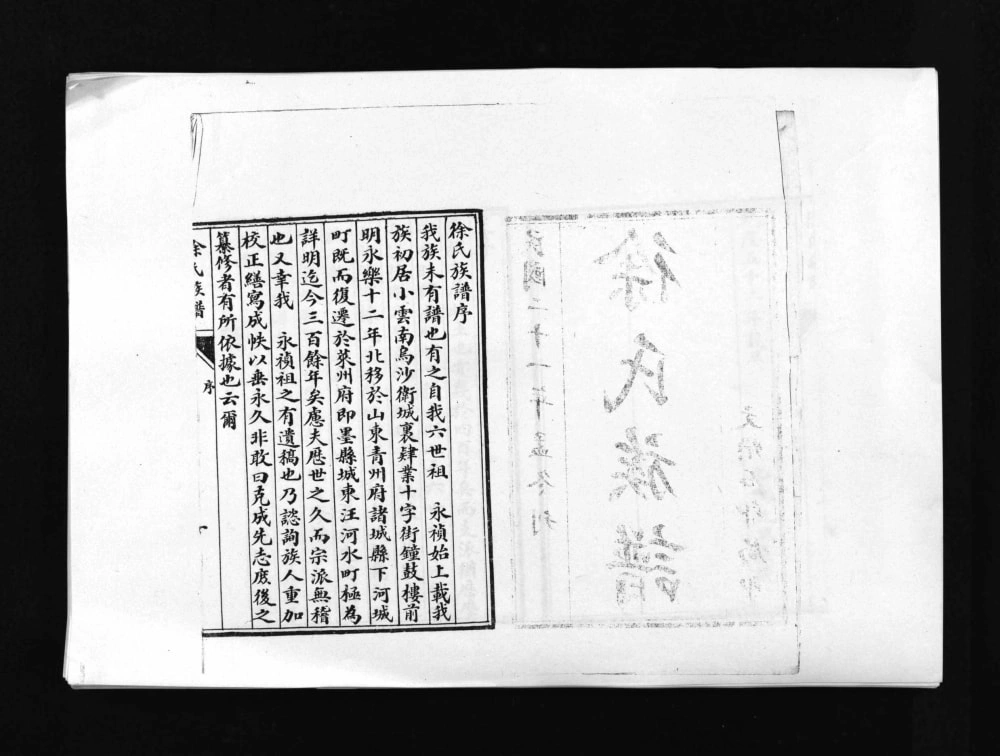 民國二十一年孟冬刊
徐氏族譜
徐氏族譜序
我族未有譜也有之自我六世祖 永禎始上載我
族初居小雲南烏沙衛城裏肄業十字街鐘鼓樓前
明永樂十二年北移於山東青州府諸城縣下河城
町既而復遷於萊州府即墨縣城東汪河水町極為
詳明迄今三百餘年矣慮夫歷世之久而宗派無稽
也又幸我 永禎祖之有遺稿也乃諮詢族人重加
校正繕寫成帙以垂永久非敢曰克成先志庶後之
纂修者有所依據也云爾
徐氏族譜
序